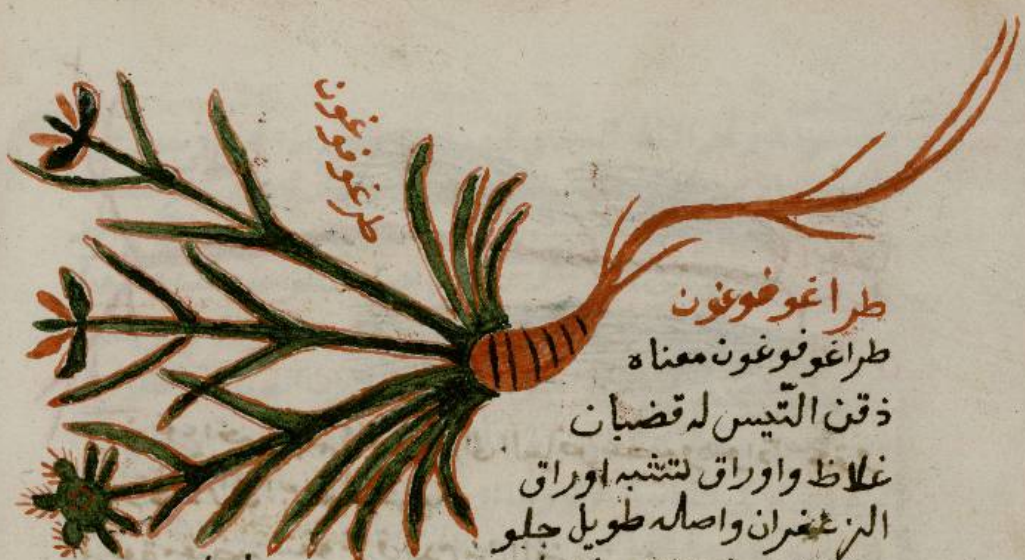 طراغوفوغون
طراغوفوغون
طراغوفوغون معناه
ذقن التّيس له قضبان
غلاظ واوراق لتشبه اوراق
الزعفران واصله طويل حلو